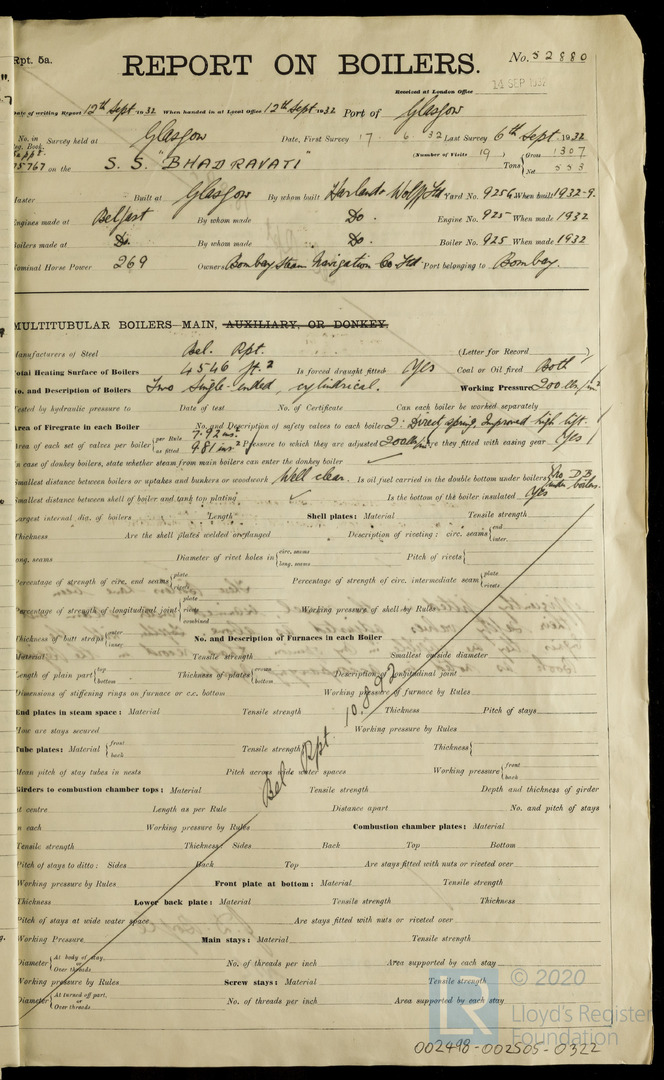 Rpt. 5a.
REPORT ON BOILERS.
No. 52880
Received at London Office
14 SEP 1932
Date of writing Report 12th Sept 1932 When handed in at Local Office 12th Sept 1932 Port of Glasgow
No. in Reg. Book. Survey held at Glasgow Date, First Survey 17. 6. 32 Last Survey 6th Sept 1932
(Number of Visits 19) Gross 1307
75767 on the S.S. "BHADRAVATI" Tons Net 553
Master Built at Glasgow By whom built Harland & Wolff Ltd Yard No. 925G When built 1932-9.
Engines made at Belfast By whom made Do. Engine No. 925 When made 1932
Boilers made at Do. By whom made Do. Boiler No. 925 When made 1932
Nominal Horse Power 269 Owners Bombay Steam Navigation Co. Ltd. Port belonging to Bombay.
MULTITUBULAR BOILERS—MAIN, AUXILIARY, OR DONKEY.
Manufacturers of Steel Bel. Rpt. (Letter for Record
Total Heating Surface of Boilers 4546 ft.2 Is forced draught fitted Yes Coal or Oil fired Both
No. and Description of Boilers Two Single-ended, cylindrical. Working Pressure 200 lbs/in2
Tested by hydraulic pressure to Date of test No. of Certificate Can each boiler be worked separately
Area of Firegrate in each Boiler No. and Description of safety valves to each boiler 2: Direct spring Improved high lift.
Area of each set of valves per boiler per Rule 7.92 ins. as fitted 9.81 ins2 Pressure to which they are adjusted 200 lbs/in2 Are they fitted with easing gear Yes
In case of donkey boilers, state whether steam from main boilers can enter the donkey boiler
Smallest distance between boilers or uptakes and bunkers or woodwork Well clear. Is oil fuel carried in the double bottom under boilers No D.B. under boilers.
Smallest distance between shell of boiler and tank top plating Is the bottom of the boiler insulated Yes
Largest internal dia. of boilers Length Shell plates: Material Tensile strength
Thickness Are the shell plates welded or flanged Description of riveting: circ. seams end inter.
long. seams Diameter of rivet holes in circ. seams long. seams Pitch of rivets
Percentage of strength of circ. end seams plate rivets Percentage of strength of circ. intermediate seam plate rivets
Percentage of strength of longitudinal joint plate rivets combined Working pressure of shell by Rules
Thickness of butt straps outer inner No. and Description of Furnaces in each Boiler
Material Tensile strength Smallest outside diameter
Length of plain part top bottom Thickness of plates crown bottom Description of longitudinal joint
Dimensions of stiffening rings on furnace or c.c. bottom Working pressure of furnace by Rules
Bel Rpt. 10.892
End plates in steam space: Material Tensile strength Thickness Pitch of stays
How are stays secured Working pressure by Rules
Tube plates: Material front back Tensile strength Thickness
Mean pitch of stay tubes in nests Pitch across wide water spaces Working pressure front back
Girders to combustion chamber tops: Material Tensile strength Depth and thickness of girder
at centre Length as per Rule Distance apart No. and pitch of stays
in each Working pressure by Rules Combustion chamber plates: Material
Tensile strength Thickness: Sides Back Top Bottom
Pitch of stays to ditto: Sides Back Top Are stays fitted with nuts or riveted over
Working pressure by Rules Front plate at bottom: Material Tensile strength
Thickness Lower back plate: Material Tensile strength Thickness
Pitch of stays at wide water space Are stays fitted with nuts or riveted over
Working Pressure Main stays: Material Tensile strength
Diameter At body of stay, or Over threads No. of threads per inch Area supported by each stay
Working pressure by Rules Screw stays: Material Tensile strength
Diameter At turned off part, or Over threads No. of threads per inch Area supported by each stay
LR © 2020
Lloyd's Register
Foundation
002498-002505-0322